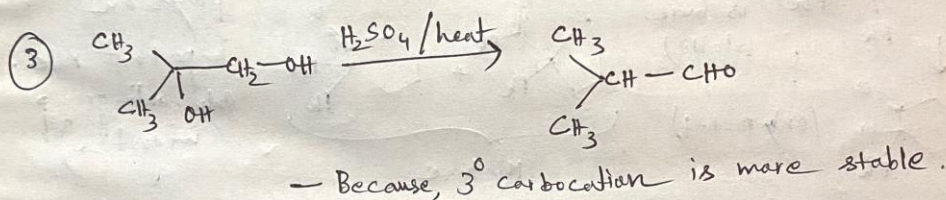 ③ CH3 CH2-OH H2SO4/heat CH3
CH - CHO
CH3 OH CH3
- Because, 3° carbocation is more stable.